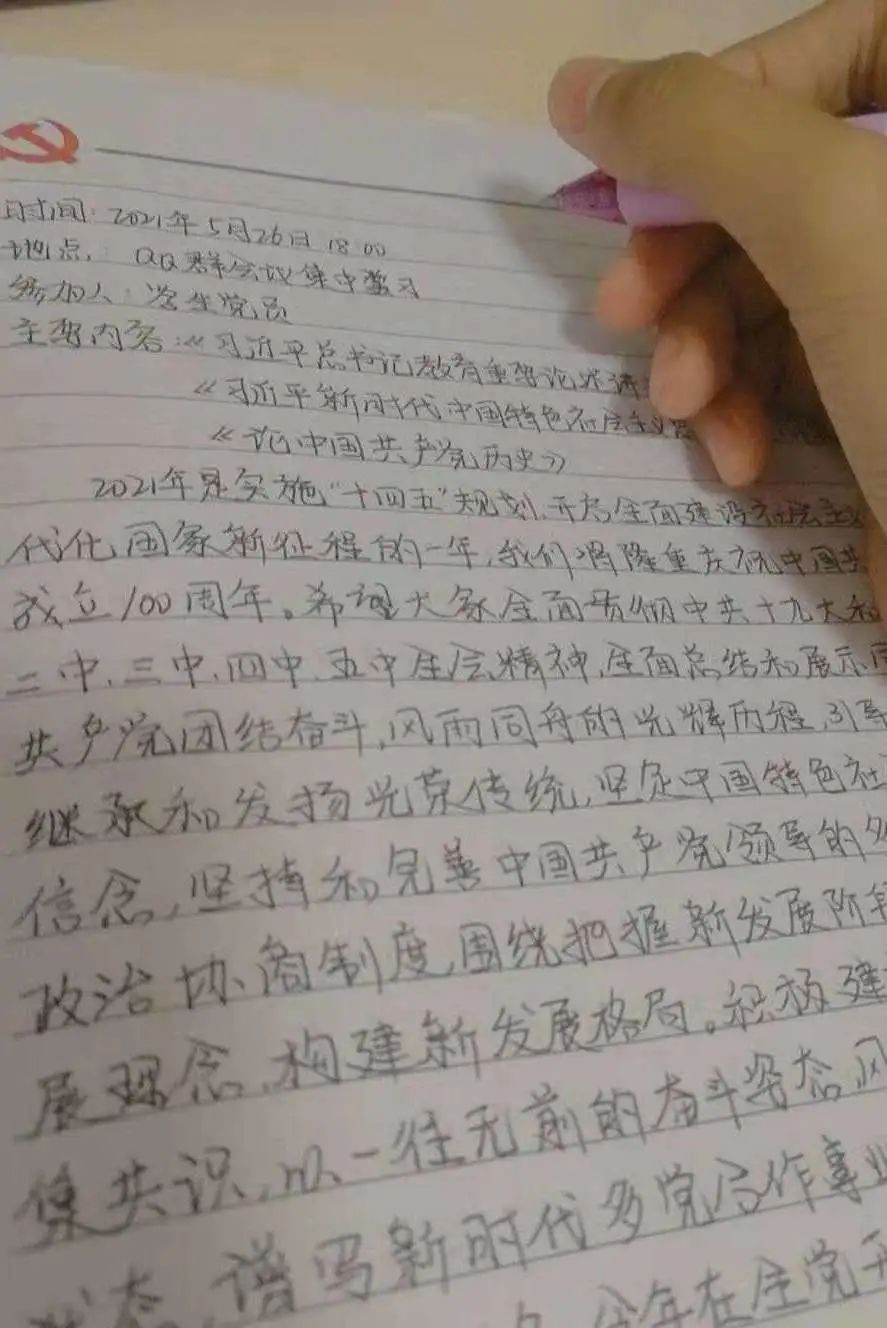 时间：2021年5月26日 18:00
地点： QQ群会议集中学习
参加人：学生党员
主要内容：《习近平总书记教育重要论述讲
《习近平新时代中国特色社会主义思
《论中国共产党历史》
2021年是实施“十四五”规划、开启全面建设社会主义
代化国家新征程的一年，我们将隆重庆祝中国共
成立100周年。希望大家全面贯彻中共十九大和
二中、三中、四中、五中全会精神，全面总结和展示
共产党团结奋斗，风雨同舟的光辉历程，引导
继承和发扬光荣传统，坚定中国特色社
信念，坚持和完善中国共产党领导的多
政治协商制度，围绕把握新发展阶段
展理念、构建新发展格局。积极建
集共识，以一往无前的奋斗姿态、风
状态，谱写新时代多党合作事业
今年在全党开